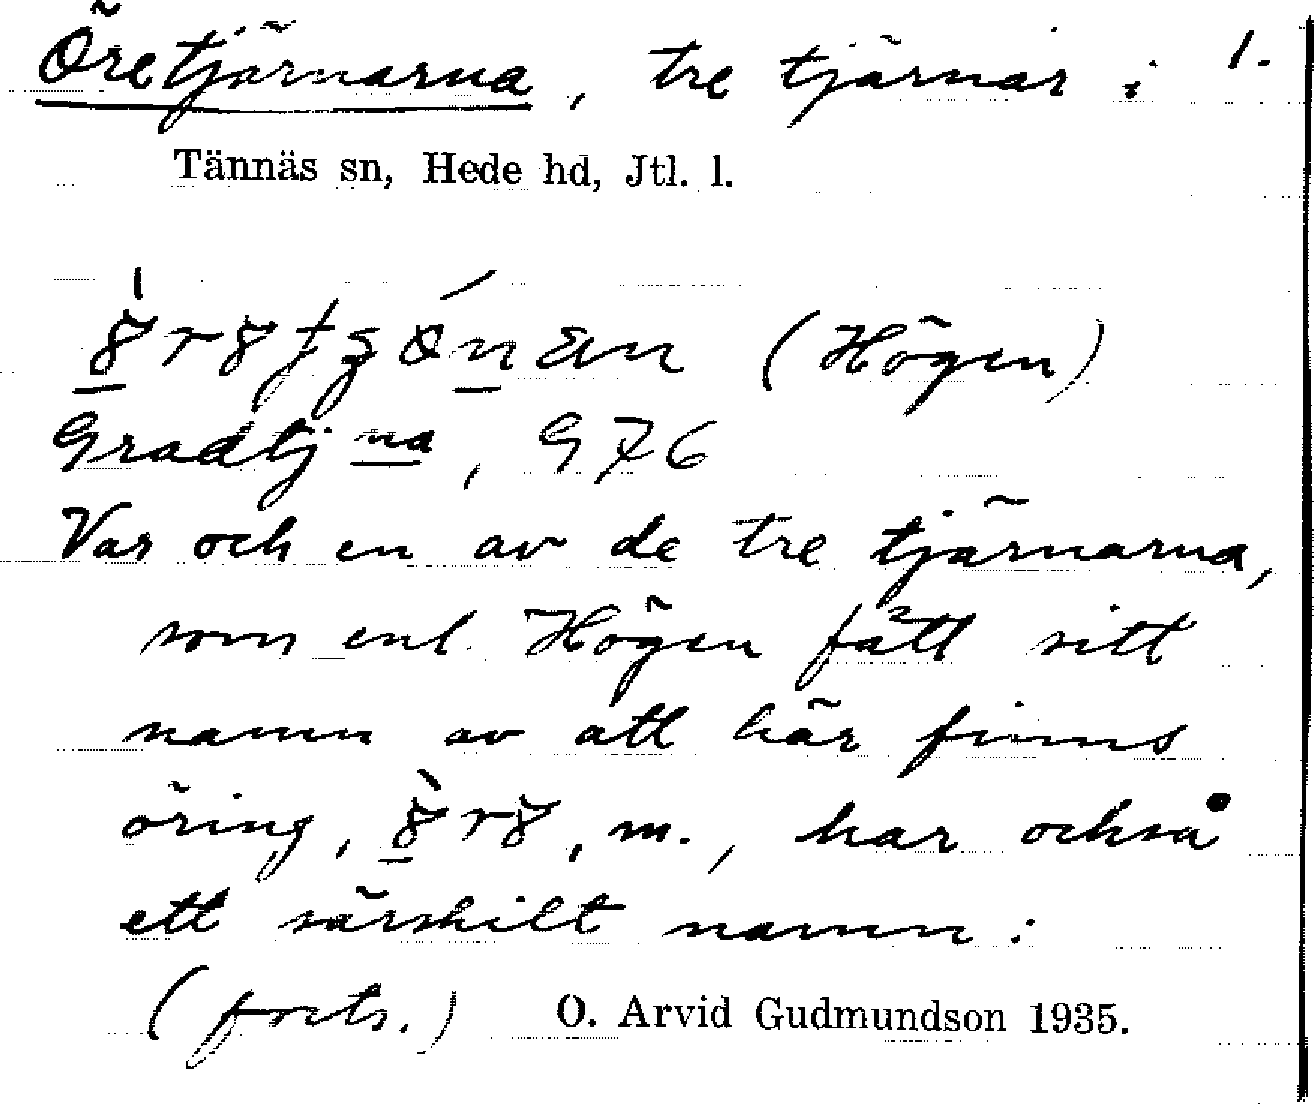 Öretjärnarna, tre tjärnar i 1.
Tännäs sn, Hede hd, Jtl. l.
(Högen)
Gradtj na, G 76
Var och en av de tre tjärnarna,
som enl. Högen fått sitt
namn av att här finns
öring, m., har också
ett särskilt namn:
(forts.) O. Arvid Gudmundson 1935.